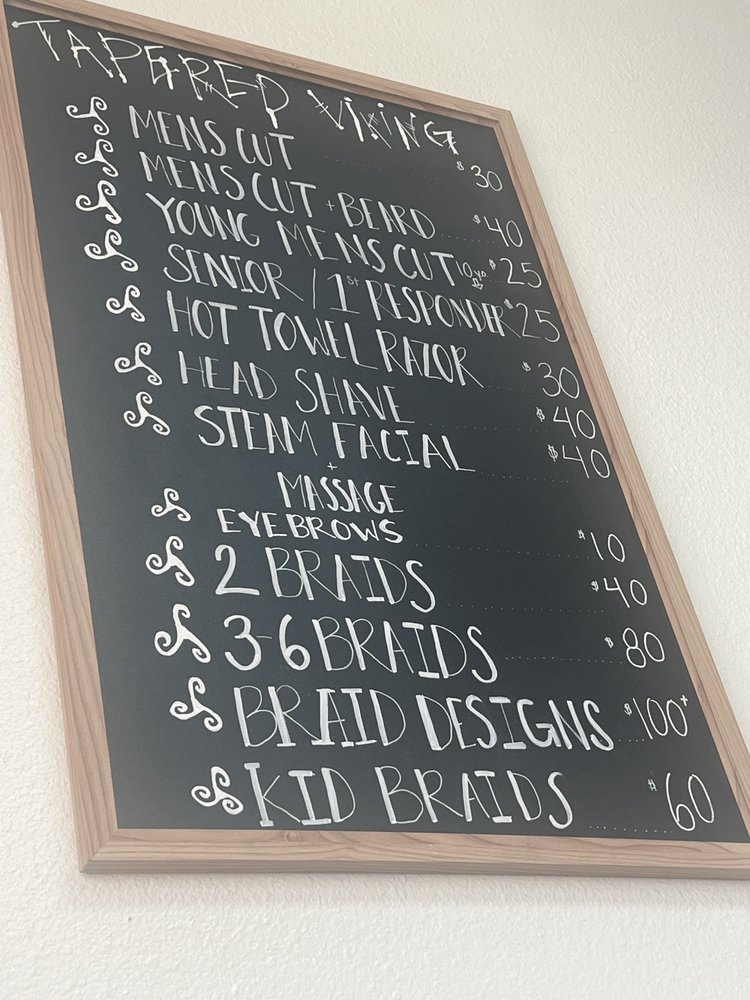 TAPERED VIKING
MENS CUT $30
MENS CUT + BEARD $40
YOUNG MENS CUT $25
SENIOR / 1st RESPONDER $25
HOT TOWEL RAZOR $30
HEAD SHAVE $40
STEAM FACIAL $40
+
MASSAGE
EYEBROWS $10
2 BRAIDS $40
3-6 BRAIDS $80
BRAID DESIGNS $100+
KID BRAIDS $60